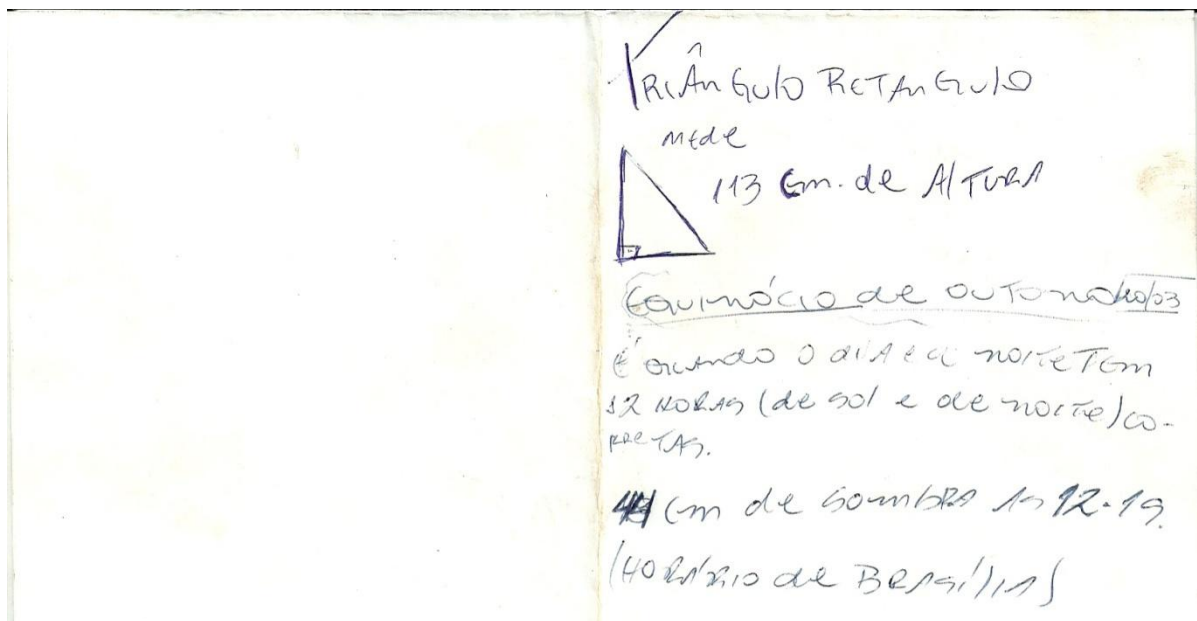 TRIÂNGULO RETANGULO
mede
113 cm. de ALTURA
Equinócio de outono 20/03
É quando o dia e a noite tem
12 horas (de sol e de noite) co-
rretas.
cm de sombra às 12:19.
(Horário de Brasília)